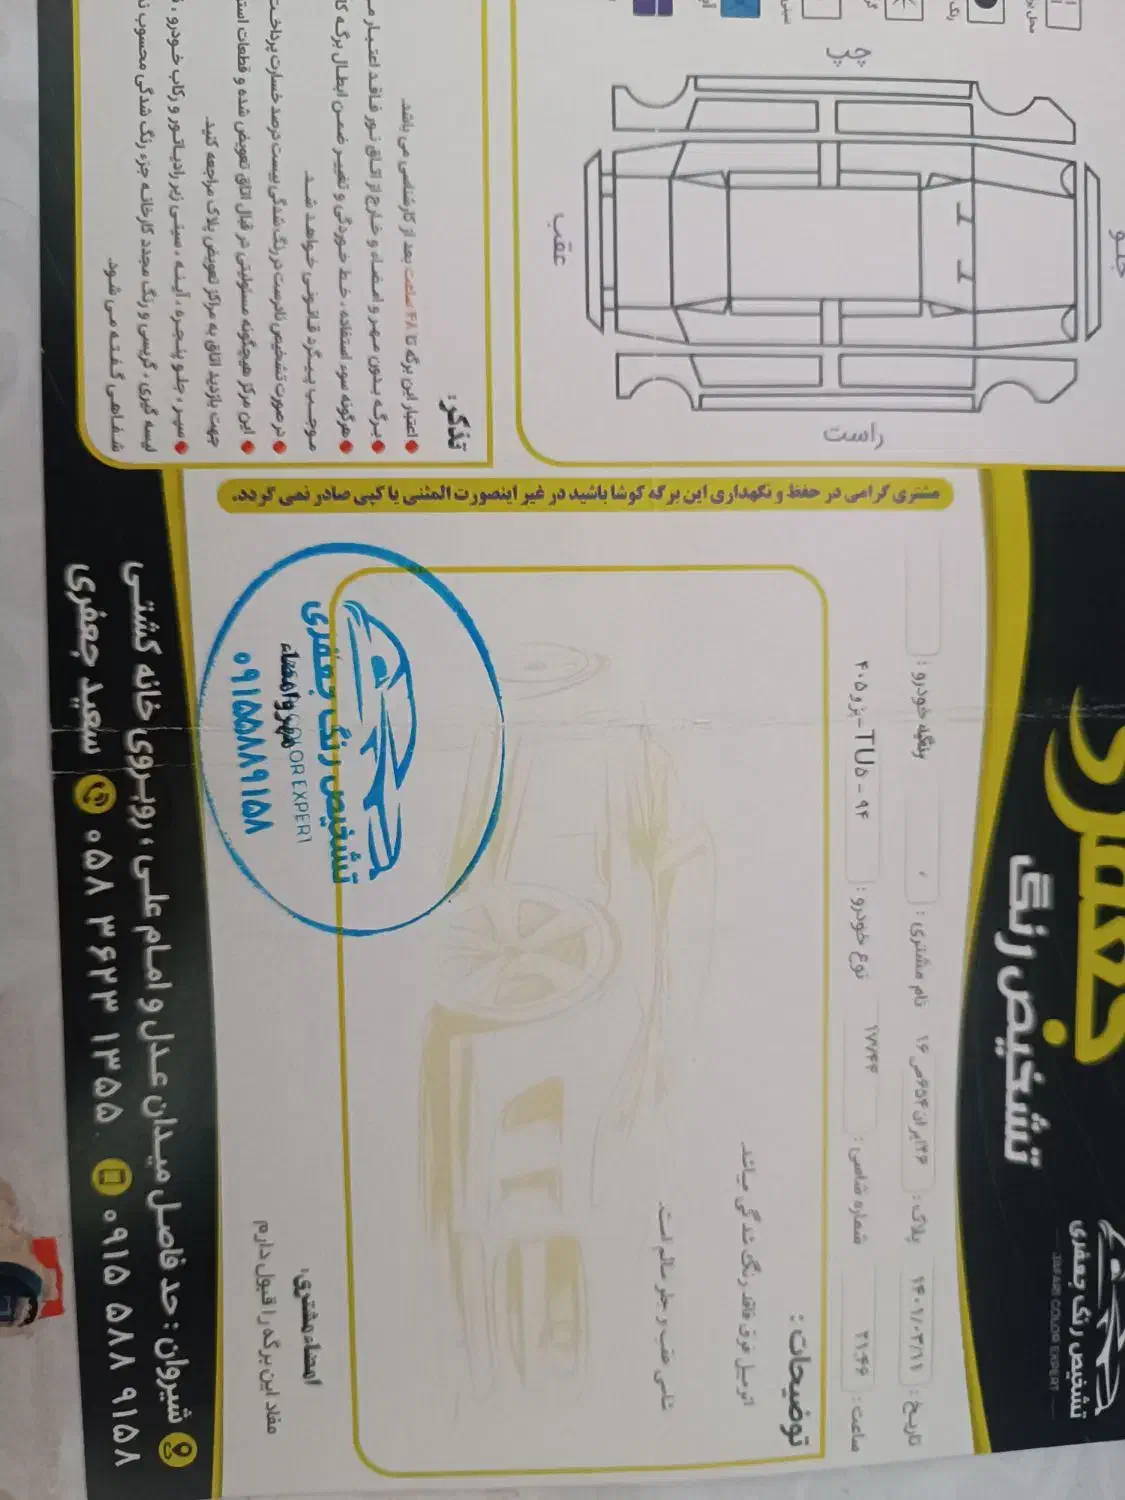 جعفری
تشخیص رنگ
تشخیص رنگ جعفری
JAFARI COLOR EXPERT
تاریخ : ۱۴۰۱/۰۳/۱۱
پلاک :
نام مشتری :
رنگ خودرو :
ساعت : ۲۱:۴۶
شماره شاسی : ۱۷۷۴۴
نوع خودرو : پژو ۴۰۵-TU۵ - ۹۴
توضیحات :
اتومبیل فوق فاقد رنگ شدگی میباشد.
شاسی عقب و جلو سالم است.
امضاء مشتری:
مفاد این برگه را قبول دارم
مهر و امضاء
تشخیص رنگ جعفری
COLOR EXPERT
۰۹۱۵۵۸۸۹۱۵۸
شیروان : حد فاصل میدان عدل و امام علی ، روبروی خانه کشتی
سعید جعفری
۰۵۸ ۳۶۲۳ ۱۳۵۵
۰۹۱۵ ۵۸۸ ۹۱۵۸
مشتری گرامی در حفظ و نگهداری این برگه کوشا باشید در غیر اینصورت المثنی یا کپی صادر نمی گردد.
جلو
چپ
راست
عقب
تذکر:
اعتبار این برگه تا ۴۸ ساعت بعد از کارشناسی می باشد.
برگه بدون مهر و امضاء و خارج از اتاق نور فاقد اعتبار
هرگونه سوء استفاده ، خط خوردگی و تغییر ضمن ابطال برگه
موجب پیگرد قانونی خواهد شد
در صورت تشخیص نادرست در رنگ شدگی بیست درصد خسارت پرداخت
این مرکز هیچگونه مسئولیتی در قبال اتاق تعویض شده و قطعات
جهت بازدید اتاق به مراکز تعویض پلاک مراجعه کنید.
سپر ، جلو پنجره ، آینه ، سینی زیر رادیاتور و رکاب خودرو ،
لیسه گیری ، گریس و رنگ مجدد کارخانه جزء رنگ شدگی محسوب
شفاهی گفته می شود.